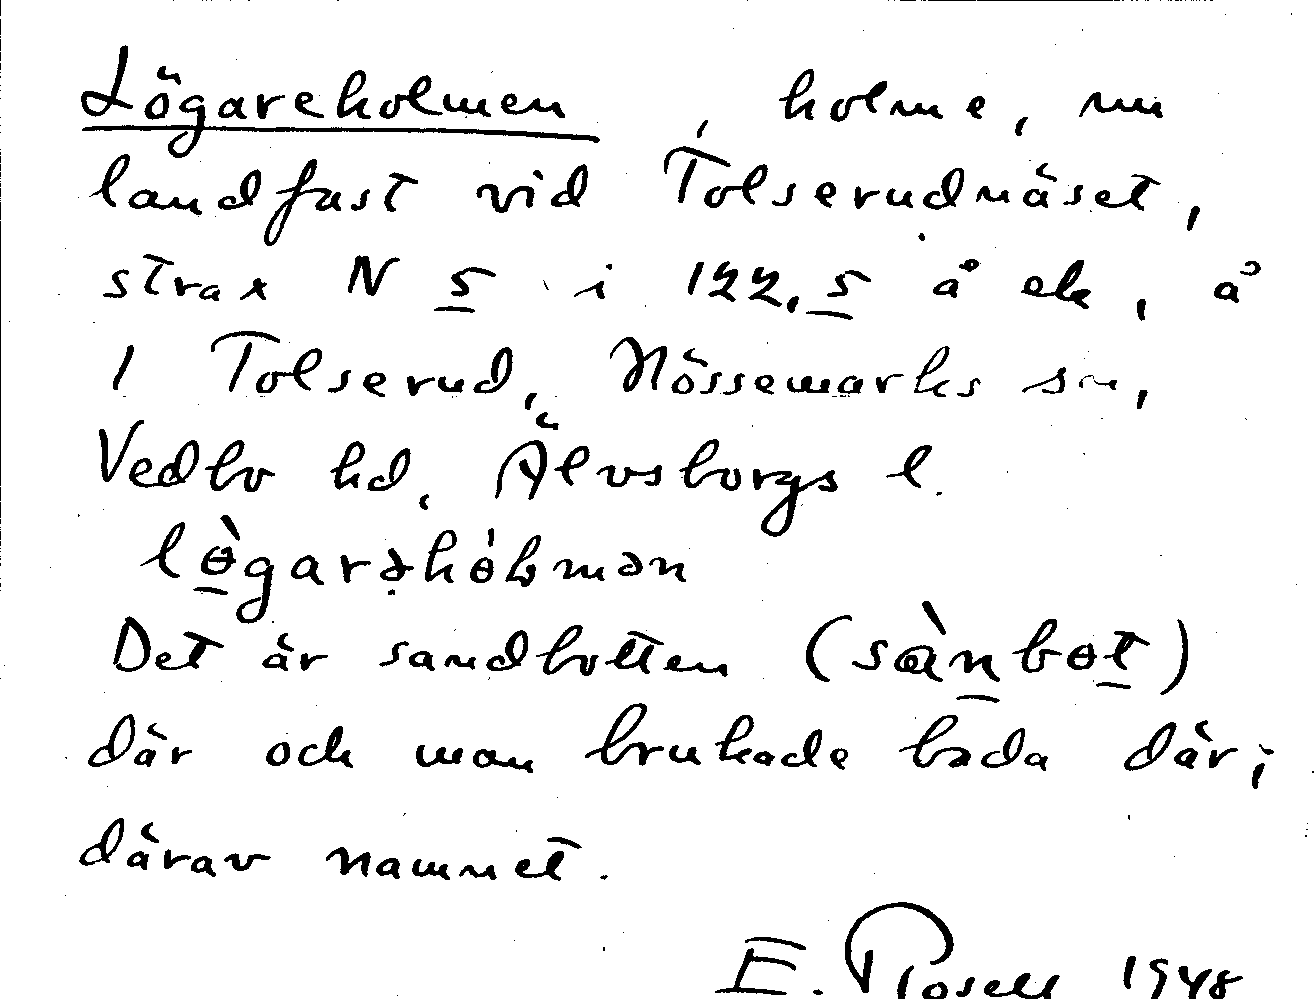 Lögareholmen, holme, nu
landfast vid Tolserudnäset,
strax N 5 i 122,5 å ek, å
1 Tolserud, Nössemarks sn,
Vedbo hd, Älvsborgs l.
lɵ̀garəhɵ́ɫmən
Det är sandbotten (sànbɵt)
där och man brukade bada där;
därav namnet.
E. Rosell 1948